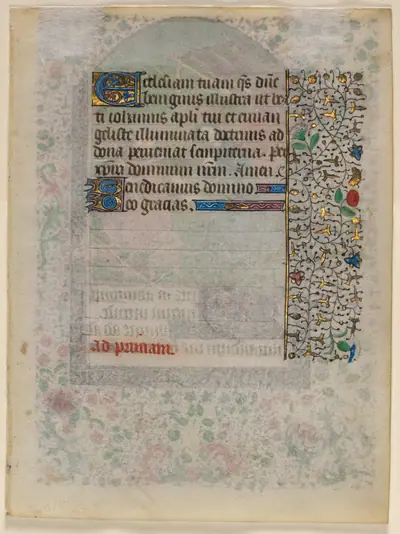 Ecclesiam tuam qs dñe
benignus illustra ut bea
ti iohannis apli tui et euuan
geliste illuminata doctrinis ad
dona perueniat sempiterna. Per
xp̄m dominum nrm. Amen.
Benedicamus domino
Deo gracias.
Ad primam.